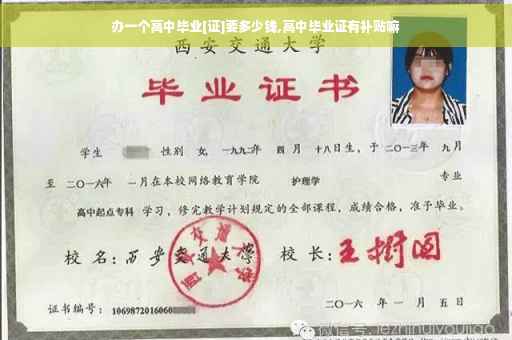 办一个高中毕业[证]要多少钱,高中毕业证有补贴嘛
西安交通大学
毕业证书
学生 性别 女, 一九九二年 四月 十八日生, 于二〇一三年 九月
至 二〇一六年 一月在本校网络教育学院 护理学 专业
高中起点专科 学习, 修完教学计划规定的全部课程, 成绩合格, 准予毕业。
校名: 西安交通大学 校长: 王树国
西安交通大学
证书编号: 1069872016060
二〇一六年 一月 五日
微信号: jiezhihuiyoujiao